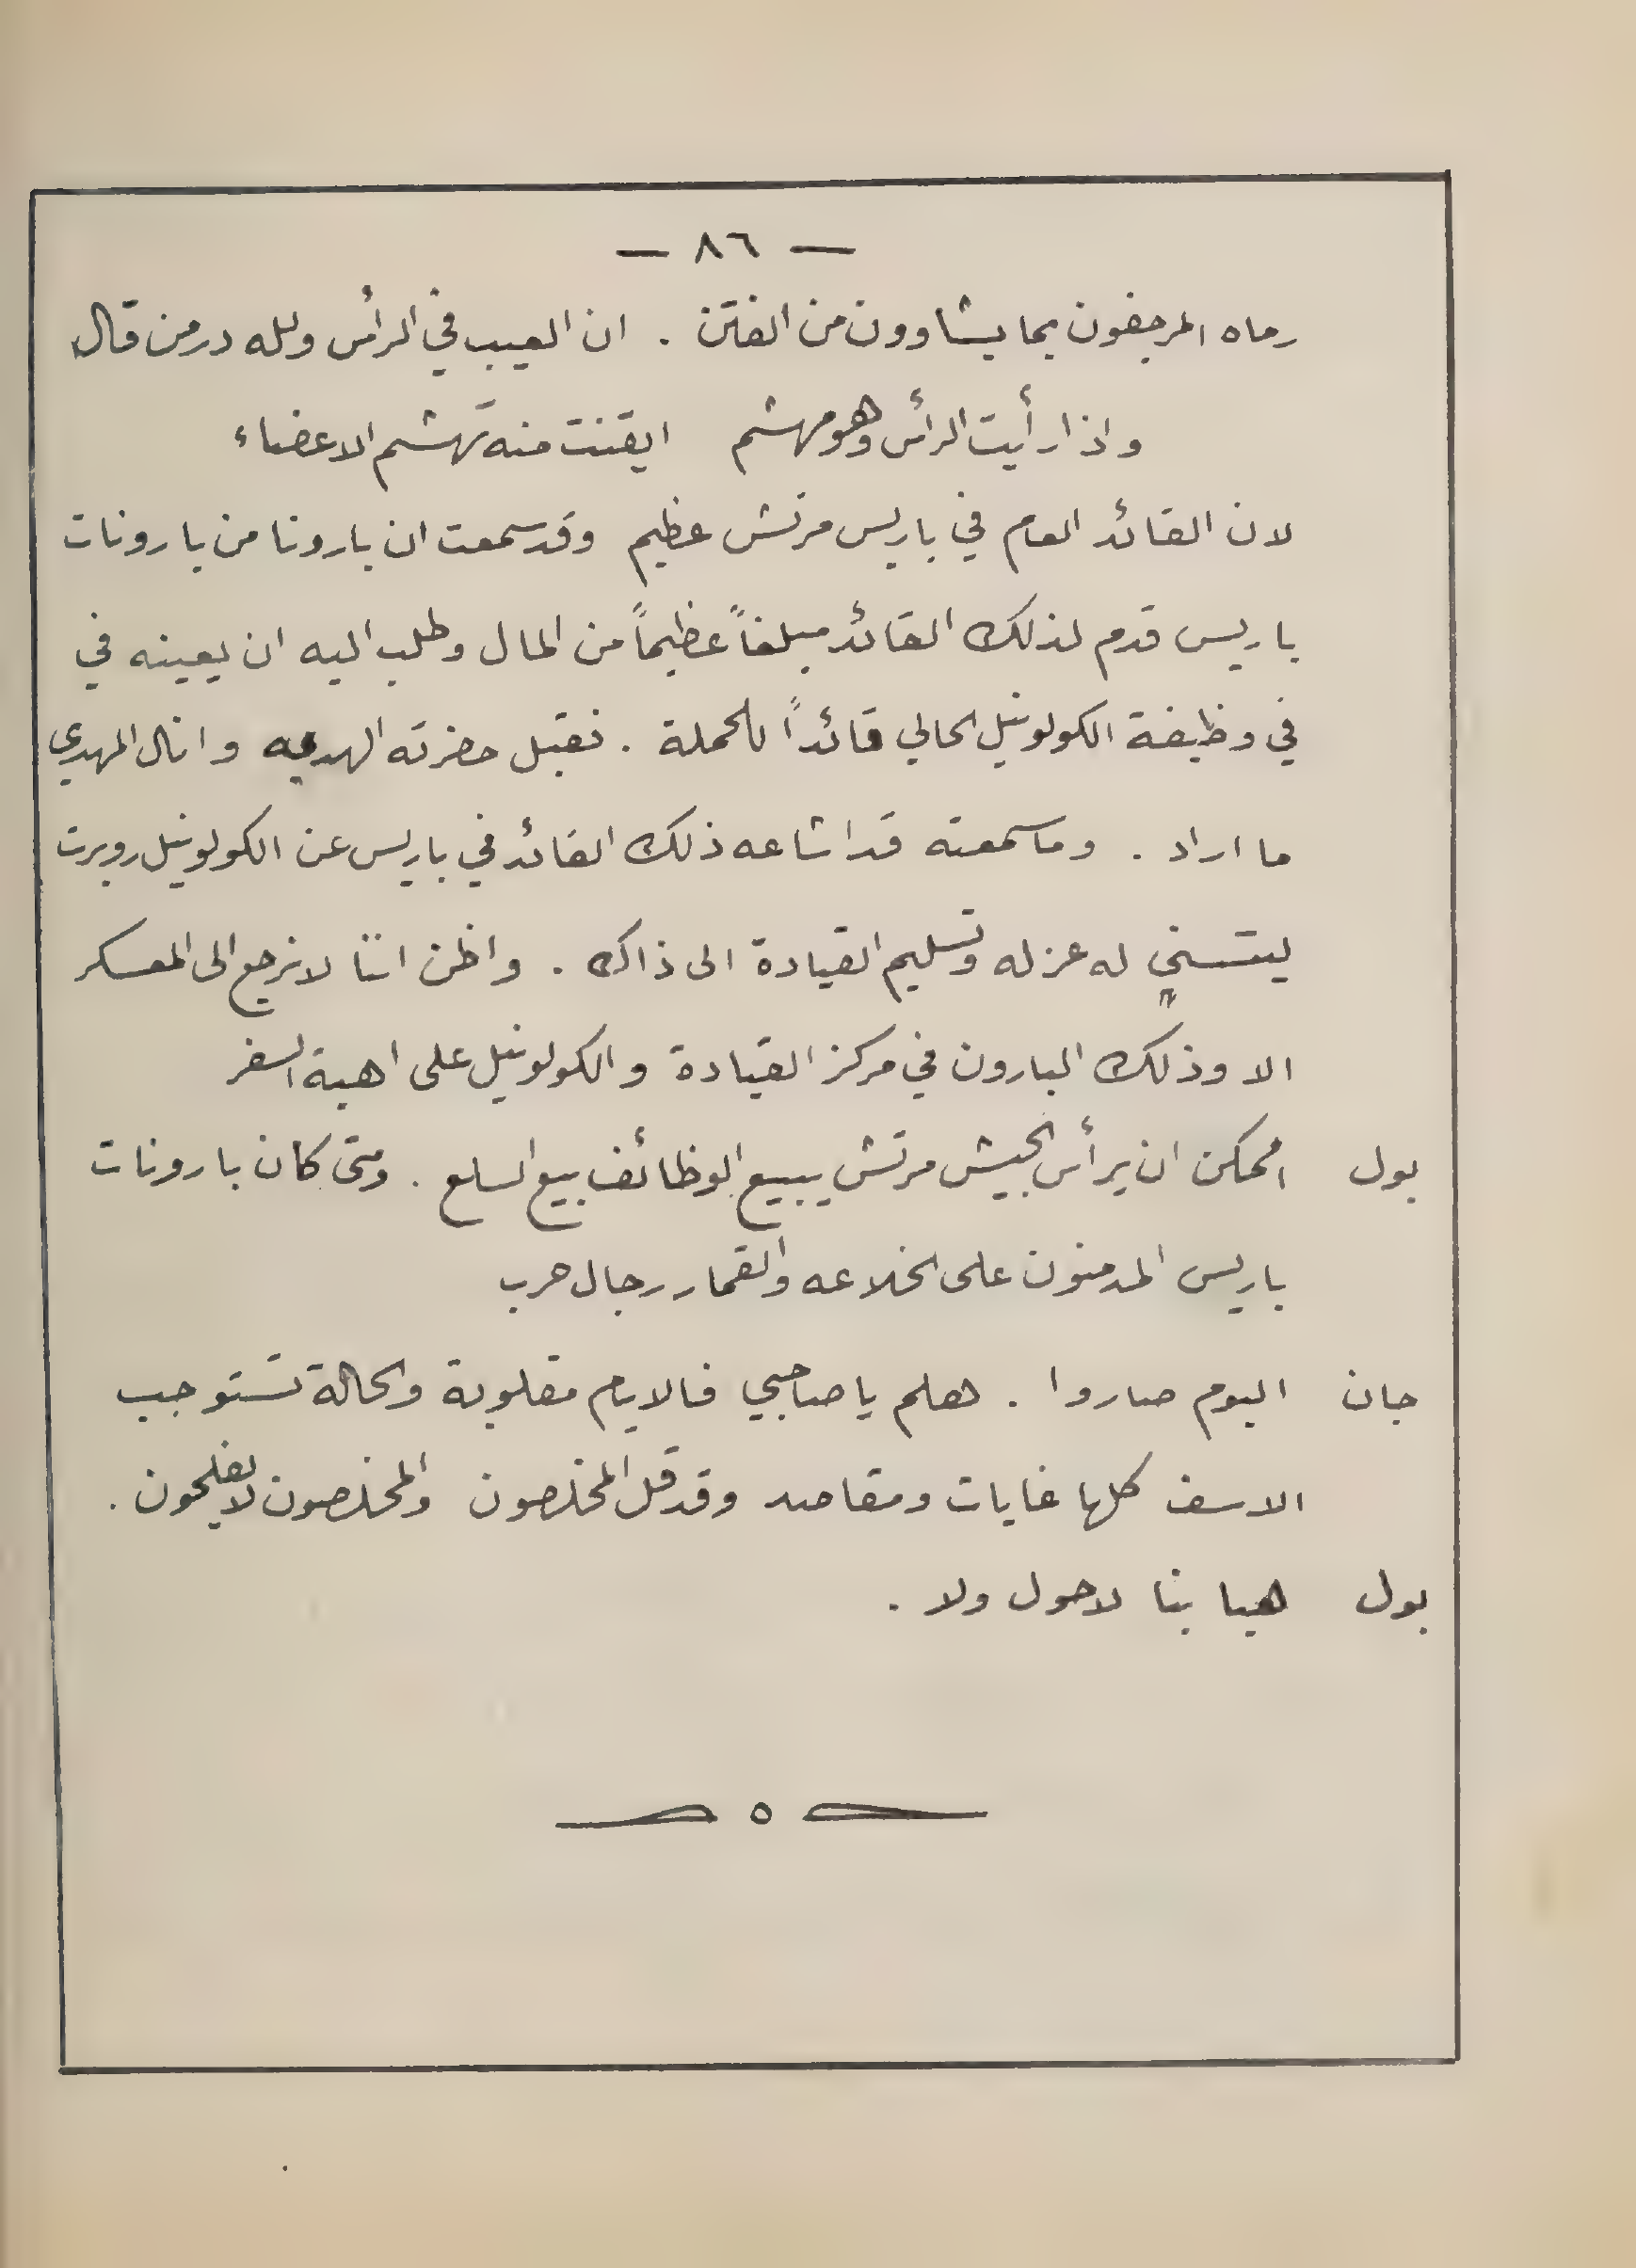 — ٨٦ —
رماه المرجفون بما يشاوون من الفتن . ان العيب في الرأس ولله در من قال
واذا رأيت الرأس وهو مهشم ايقنت منه تهشم الاعضاء
لان القائد العام في باريس مرتش عظيم وقد سمعت ان بارونا من بارونات
باريس قدم لذلك القائد مبلغاً عظيماً من المال وطلب اليه ان يعينه في
في وظيفة الكولونيل الحالي قائداً للحملة . فقبل حضرته الهديه وانال المهدي
ما اراد . وما سمعته قد اشاعه ذلك القائد في باريس عن الكولونيل روبرت
ليتسنى له عزله وتسليم القيادة الى ذاك . واظن اننا لا نرجع الى المعسكر
الا وذلك البارون في مركز القيادة والكولونيل على اهبة السفر
بول اممكن ان يرأس الجيش مرتش يبيع الوظائف بيع السلع . ومتى كان بارونات
باريس المدمنون على الخلاعه والقمار رجال حرب
جان اليوم صاروا . هلم يا صاحبي فالايام مقلوبة والحالة تستوجب
الاسف كلها غايات ومقاصد وقد قل المخلصون والمخلصون لا يفلحون .
بول هيا بنا لا حول ولا .